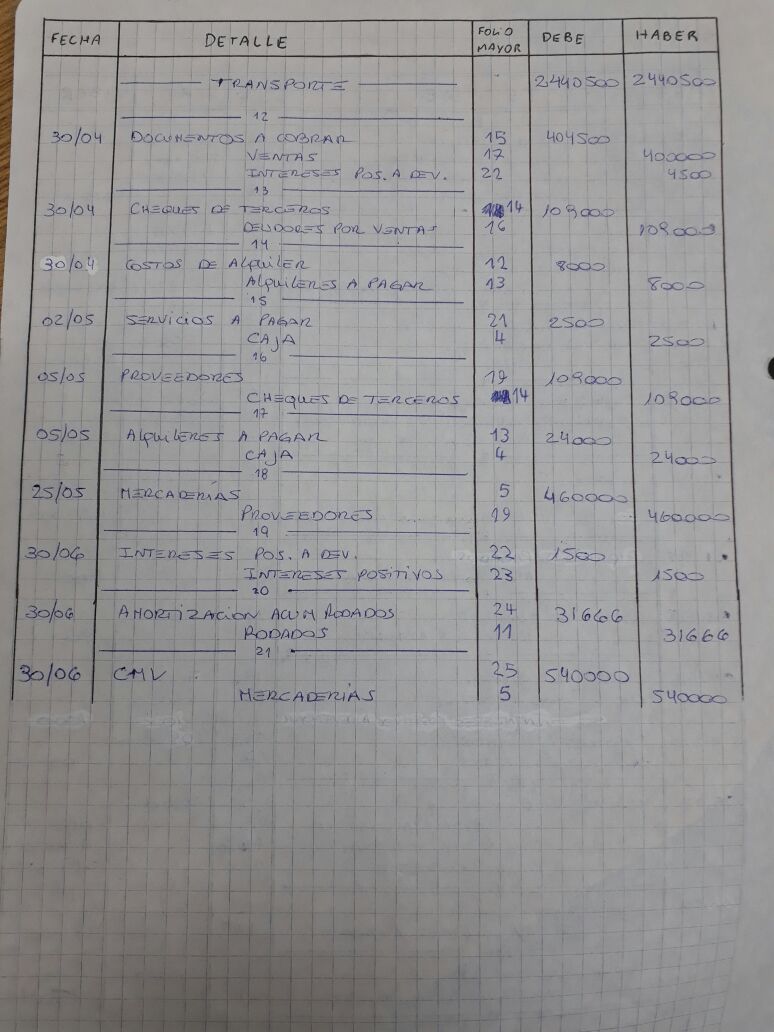 FECHA DETALLE FOLIO MAYOR DEBE HABER
TRANSPORTE 2440500 2440500
12
30/04 DOCUMENTOS A COBRAR 15 404500
VENTAS 17 400000
INTERESES POS. A DEV. 22 4500
13
30/04 CHEQUES DE TERCEROS 14 109000
DEUDORES POR VENTAS 16 109000
14
30/04 COSTOS DE ALQUILER 12 8000
ALQUILERES A PAGAR 13 8000
15
02/05 SERVICIOS A PAGAR 21 2500
CAJA 4 2500
16
05/05 PROVEEDORES 19 109000
CHEQUES DE TERCEROS 14 109000
17
05/05 ALQUILERES A PAGAR 13 24000
CAJA 4 24000
18
25/05 MERCADERIAS 5 460000
PROVEEDORES 19 460000
19
30/06 INTERESES POS. A DEV. 22 1500
INTERESES POSITIVOS 23 1500
20
30/06 AMORTIZACION ACUM RODADOS 24 31666
RODADOS 11 31666
21
30/06 CMV 25 540000
MERCADERIAS 5 540000